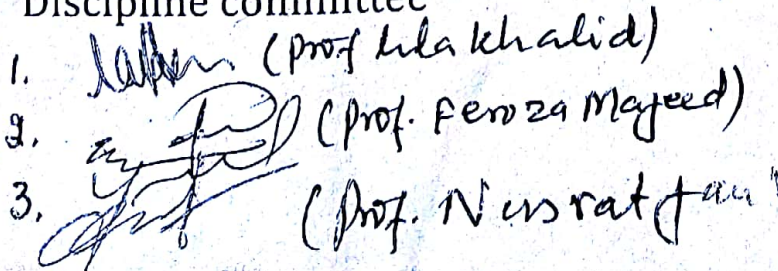 Discipline committee
1. (Prof Lila Khalid)
2. (Prof. Feroza Majeed)
3. (Prof. Nusrat Jan)